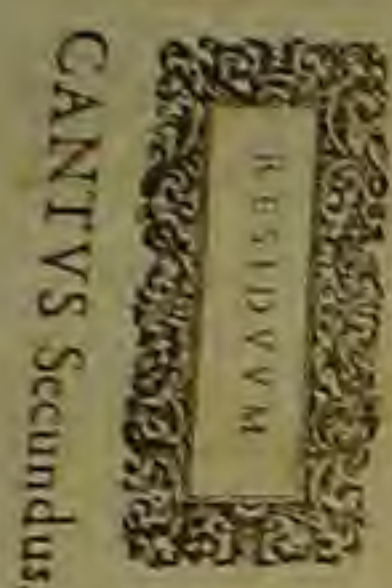 RESIDVVM
CANTVS Secundus.